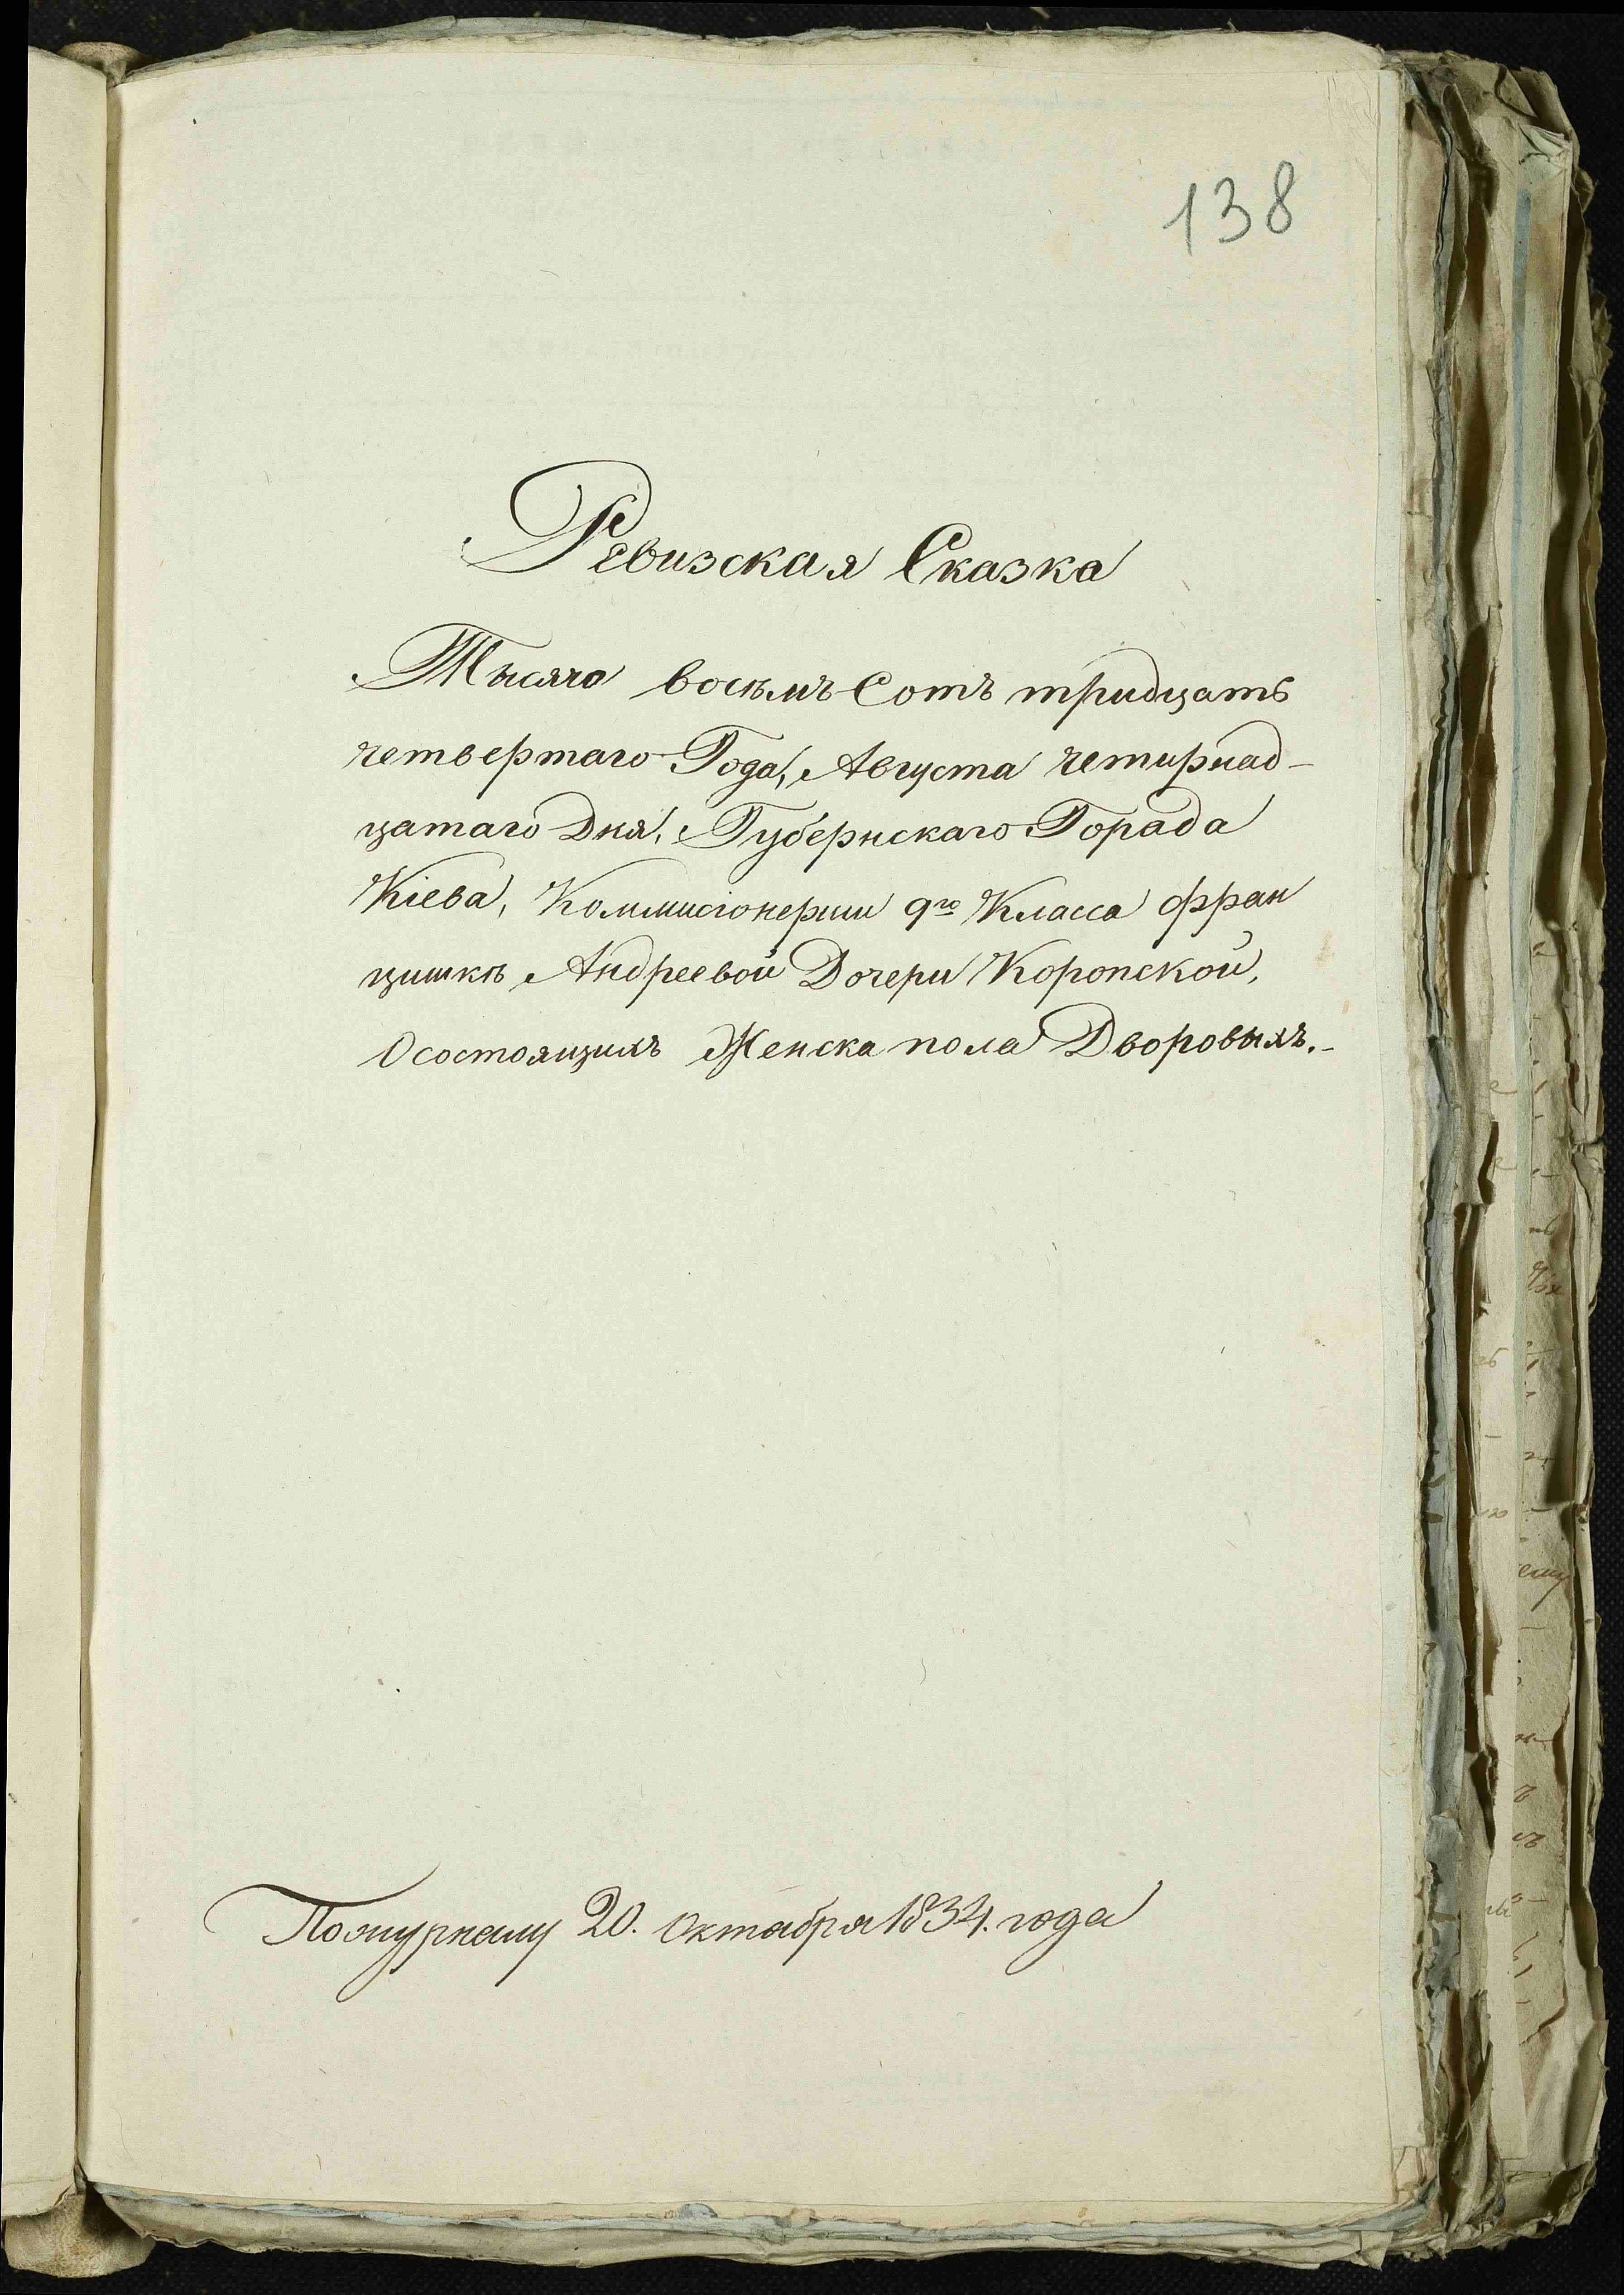 138
Ревизская Сказка
Тысяча восѣмъ Сотъ тридцать
четвертаго Года, Августа четирнад-
цатаго Дня, Губернскаго Горада
Кіева, Коммисіонерши 9го Класса Фран
цишкѣ Андреевой Дочери Коропской,
О состоящихъ Женска пола Дворовыхъ.-
По журналу 20. Октября 1834. года